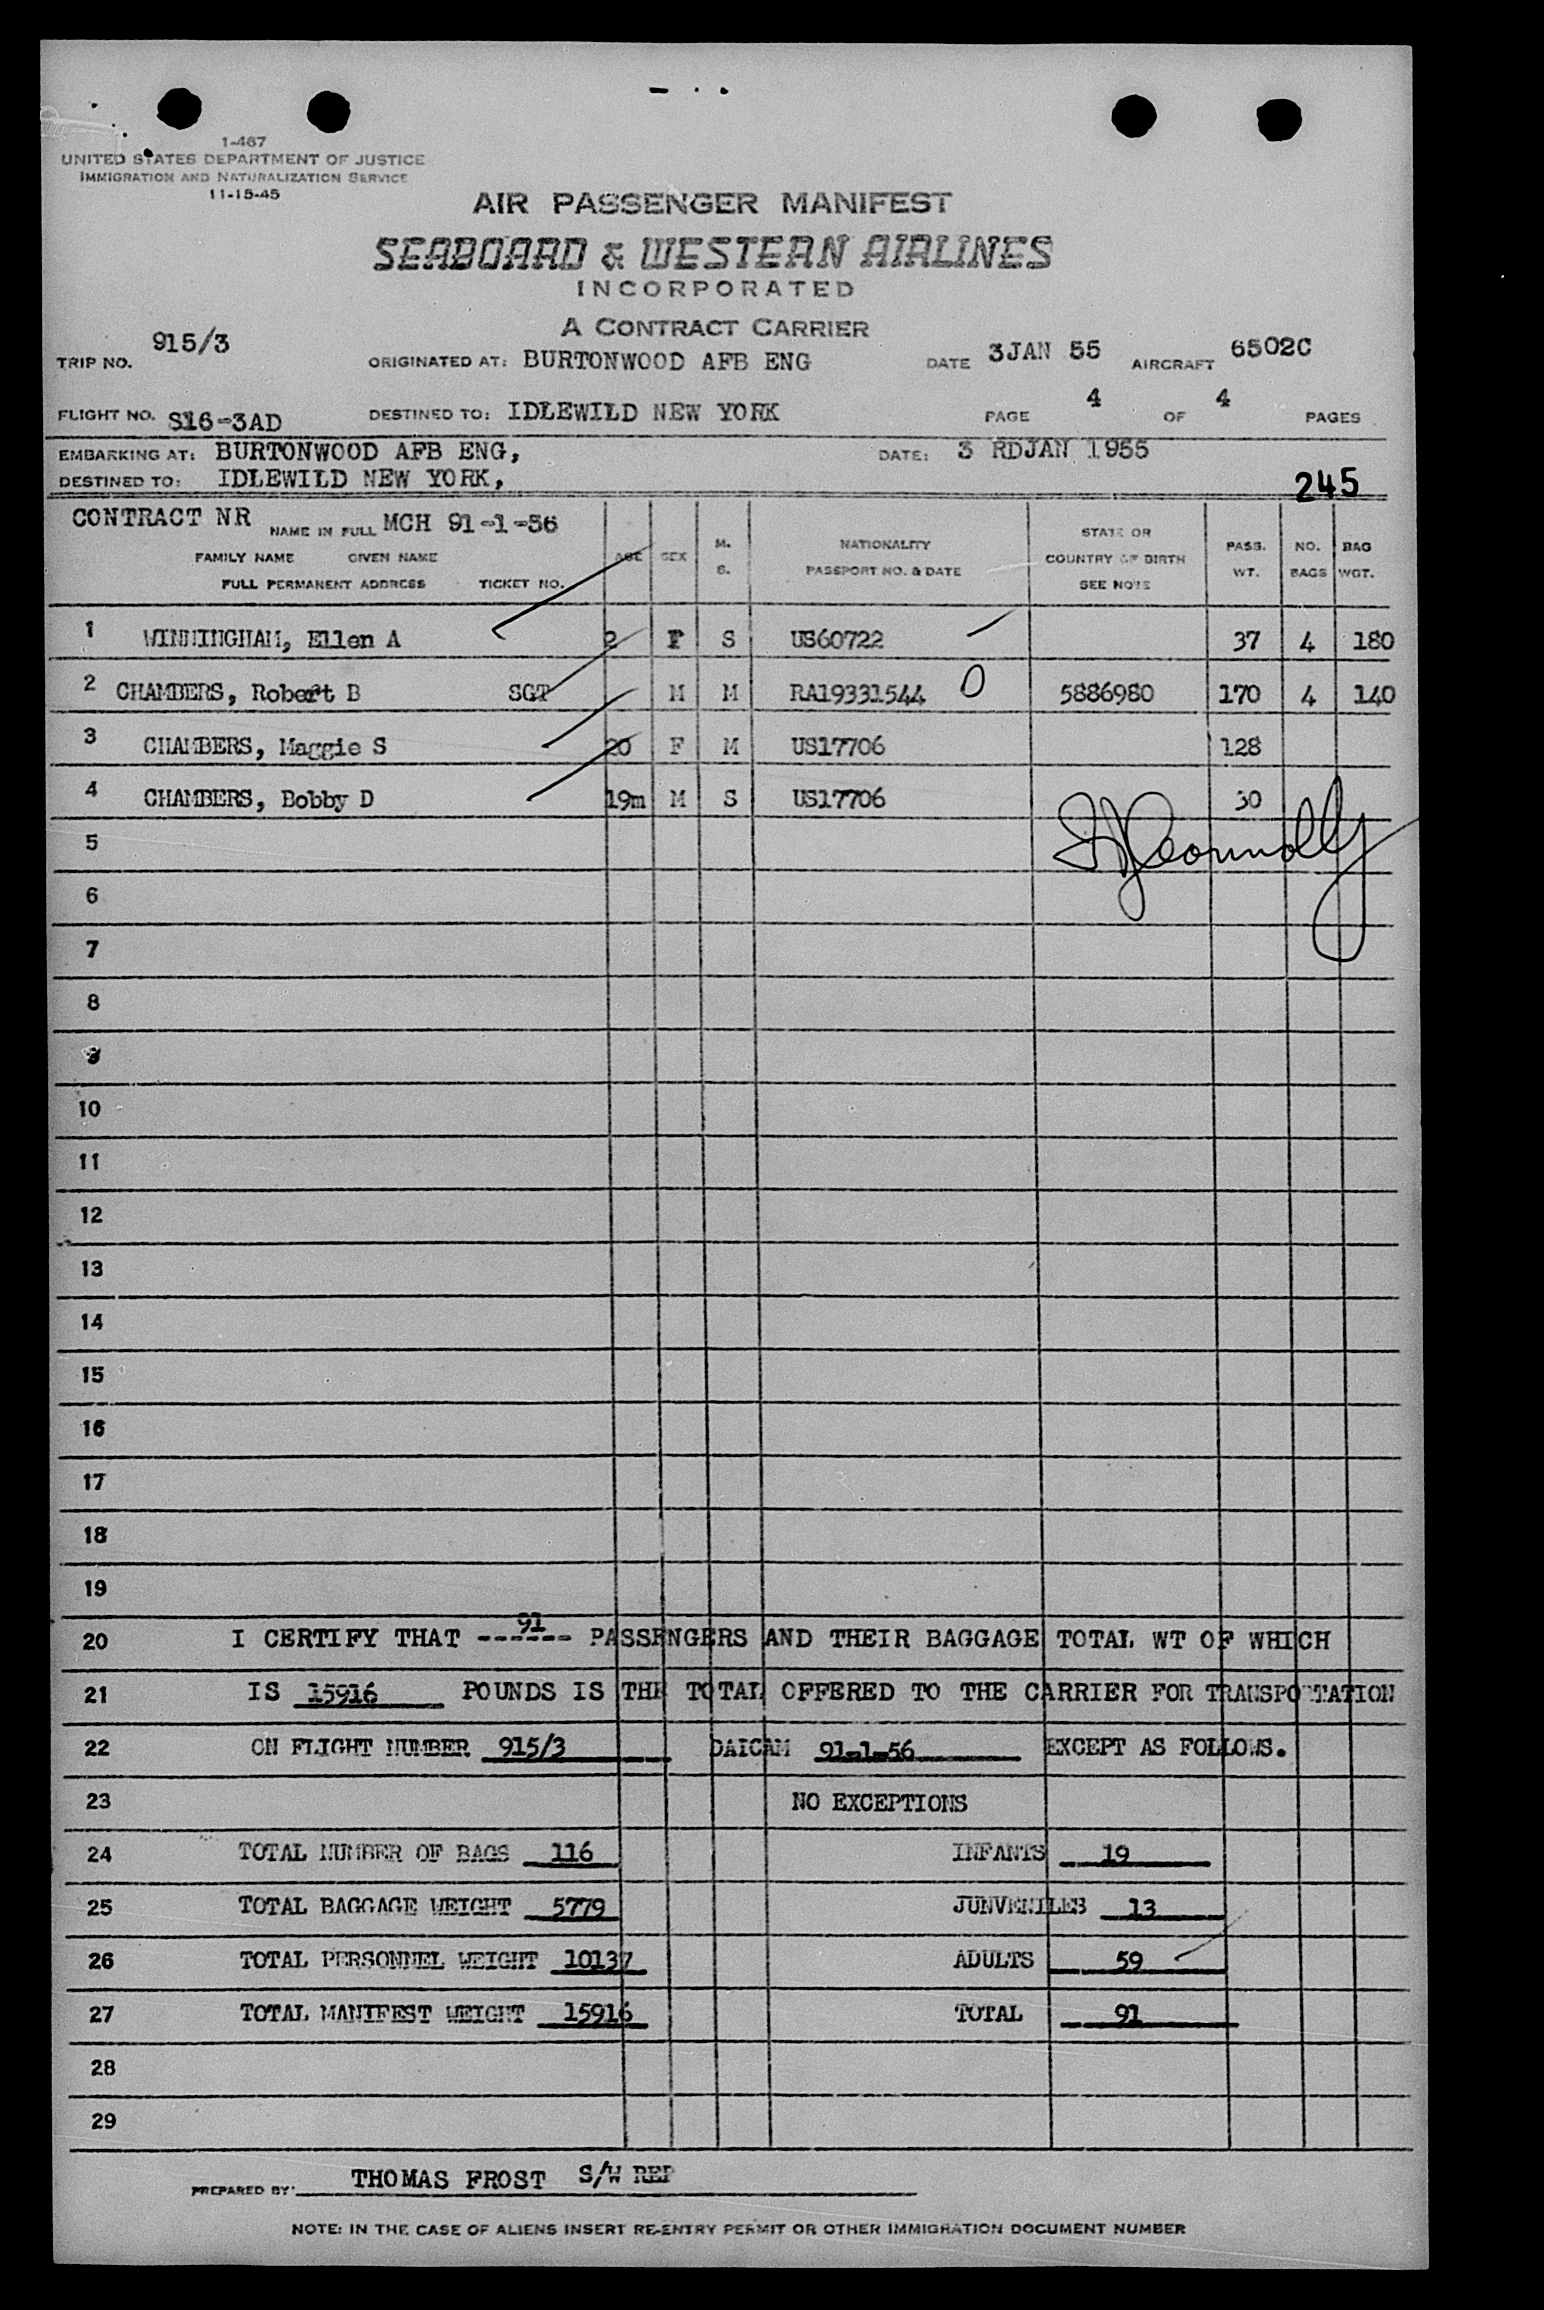 1-467
UNITED STATES DEPARTMENT OF JUSTICE
IMMIGRATION AND NATURALIZATION SERVICE
11-15-45
AIR PASSENGER MANIFEST
SEABOARD & WESTERN AIRLINES
INCORPORATED
A CONTRACT CARRIER
TRIP NO. 915/3 ORIGINATED AT: BURTONWOOD AFB ENG DATE 3JAN 55 AIRCRAFT 6502C
FLIGHT NO. S16-3AD DESTINED TO: IDLEWILD NEW YORK PAGE 4 OF 4 PAGES
EMBARKING AT: BURTONWOOD AFB ENG, DATE: 3 RDJAN 1955
DESTINED TO: IDLEWILD NEW YORK, 245
CONTRACT NR NAME IN FULL MCH 91-1-56
FAMILY NAME GIVEN NAME AGE SEX M. S. NATIONALITY PASSPORT NO. & DATE STATE OR COUNTRY OF BIRTH SEE NOTE PASS. WT. NO. BAGS BAG WGT.
FULL PERMANENT ADDRESS TICKET NO.
1 WINNINGHAM, Ellen A 2 F S US60722 37 4 180
2 CHAMBERS, Robert B SGT M M RA19331544 O 5886980 170 4 140
3 CHAMBERS, Maggie S 20 F M US17706 128
4 CHAMBERS, Bobby D 19m M S US17706 30
5
6
7
8
9
10
11
12
13
14
15
16
17
18
19
20 I CERTIFY THAT ------ 91 PASSENGERS AND THEIR BAGGAGE TOTAL WT OF WHICH
21 IS 15916 POUNDS IS THE TOTAL OFFERED TO THE CARRIER FOR TRANSPORTATION
22 ON FLIGHT NUMBER 915/3 DAICAM 91-1-56 EXCEPT AS FOLLOWS.
23 NO EXCEPTIONS
24 TOTAL NUMBER OF BAGS 116 INFANTS 19
25 TOTAL BAGGAGE WEIGHT 5779 JUNVENILES 13
26 TOTAL PERSONNEL WEIGHT 10137 ADULTS 59
27 TOTAL MANIFEST WEIGHT 15916 TOTAL 91
28
29
PREPARED BY: THOMAS FROST S/W REP
NOTE: IN THE CASE OF ALIENS INSERT RE-ENTRY PERMIT OR OTHER IMMIGRATION DOCUMENT NUMBER